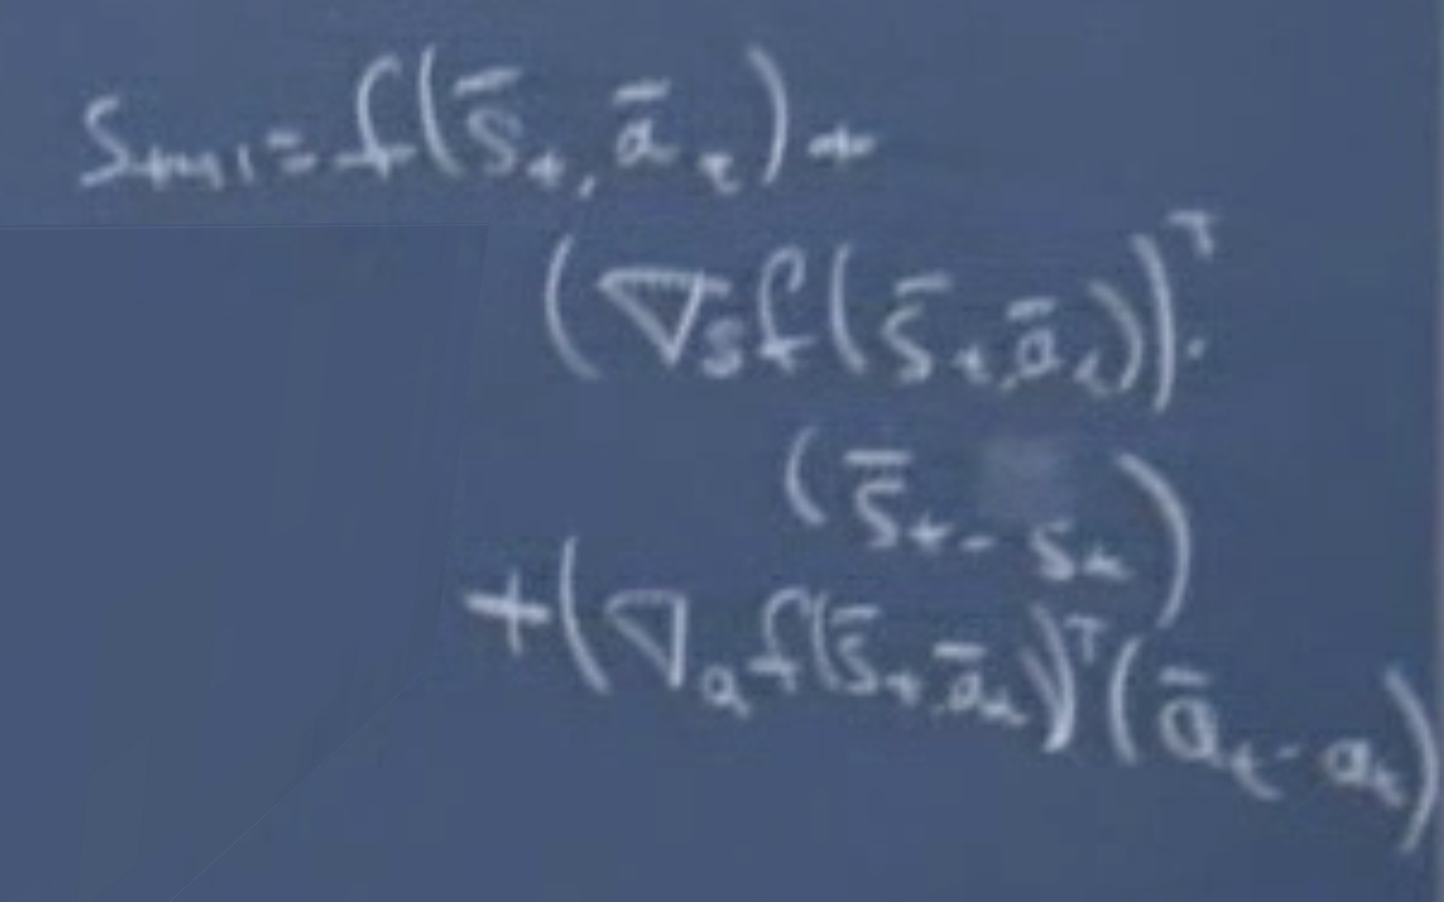 S_{t+1} = f(s̄_t, ā_t) +
(∇_s f(s̄_t, ā_t))^T ·
(s̄_t - s_t)
+ (∇_a f(s̄_t, ā_t))^T (ā_t - a_t)